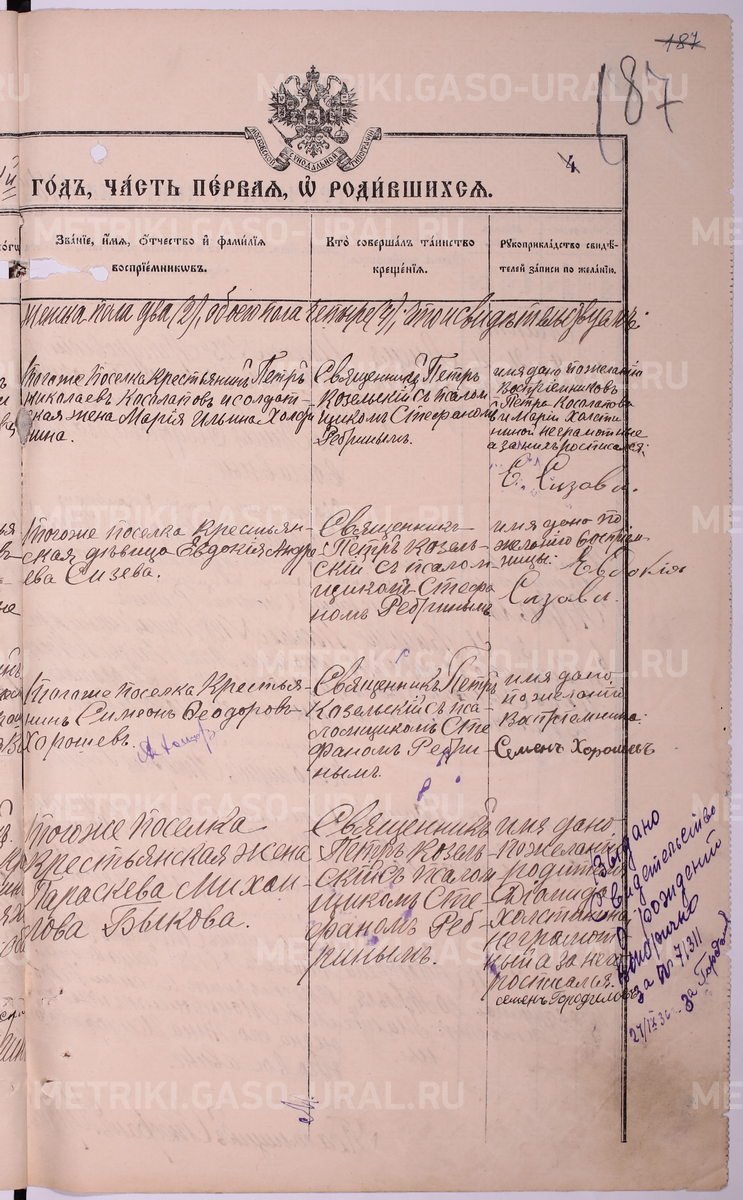 187
187
МОСКОВСКОЙ СѴНОДАЛЬНОЙ ТИПОГРАФІИ
4
ГОДЪ, ЧАСТЬ ПЕРВАЯ, Ѡ РОДИВШИХСЯ.
Званіе, имя, отчество и фамилія
воспріемникѡвъ.
Кто совершалъ таинство
крещенія.
Рукоприкладство свидѣ-
телей записи по желанію.
женска пола два /2/, обоего пола четыре /4/,
Тогоже поселка крестьянинъ Петръ
Николаевъ Косолаповъ и солдат-
ская жена Марія Ильина
Священникъ Петръ
Козельскій съ псалом
щикомъ Стефаномъ
Ребринымъ.
имя дано по желанію
воспріемниковъ
Петра Косолапова
и Маріи
неграмотные
а за нихъ росписался
Е. Сизова.
Тогоже поселка крестьян-
ская дѣвица Евдокія Андре
ева Сизева.
Священникъ
Петръ Козель-
скій съ псалом
щикомъ Стефа
номъ Ребринымъ
имя дано по
желанію воспрiем-
ницы: Евдокія
Сизова.
Тогоже поселка крестья-
нинъ Симеонъ Ѳеодоровъ
Хорошевъ.
Священникъ Петръ
Козельскій съ пса-
ломщикомъ Сте
фаномъ Ребри-
нымъ.
имя дано
по желанію
воспріемника:
Семенъ Хорошевъ
Тогоже поселка
крестьянская жена
Параскева Михаи-
лова Быкова.
Священникъ
Петръ Козель-
скій съ псалом
щикомъ Сте-
фаномъ Реб-
ринымъ.
имя дано
по желанію
родителя
неграмот
ный а за него
росписался
семенъ
Выдано
Свидетельство
о рождении
вторично
за № 71311
27/IX 36
METRIKI.GASO-URAL.RU
METRIKI.GASO-URAL.RU
METRIKI.GASO-URAL.RU
METRIKI.GASO-URAL.RU